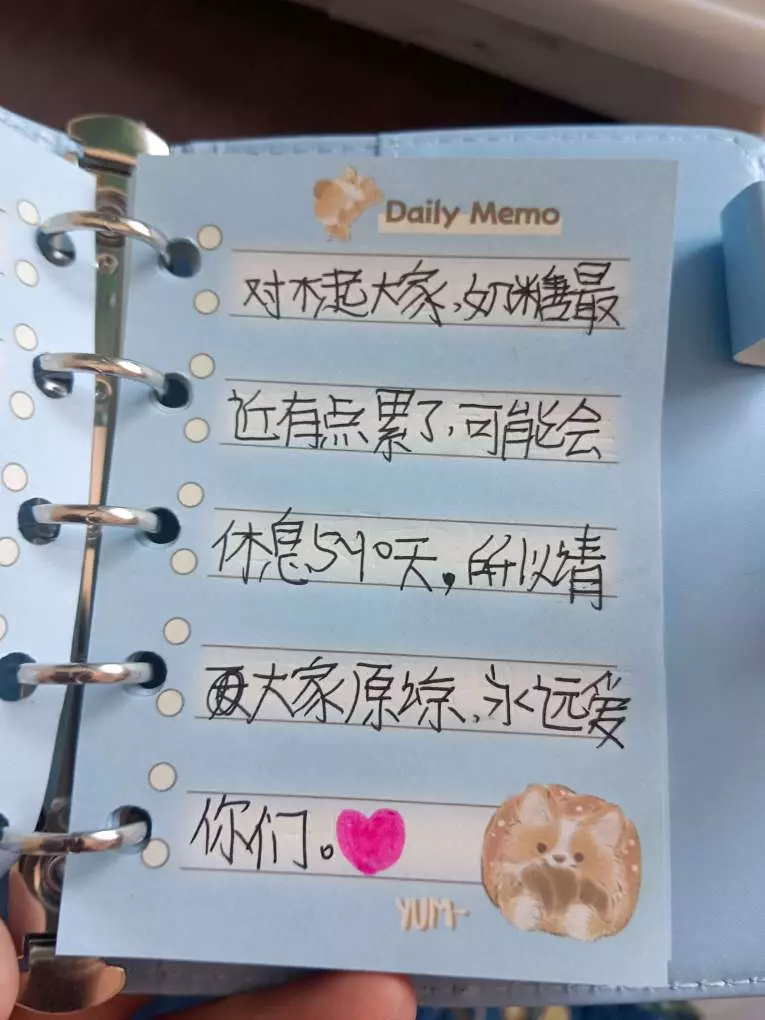 Daily Memo
对不起大家,奶糖最
近有点累了,可能会
休息590天,所以请
大家原谅,永远爱
你们。
YUM-